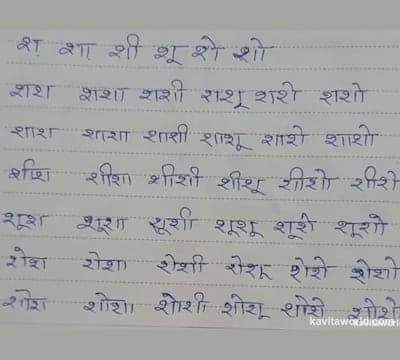 श शा शी शू शे शो
शश शशा शशी शशू शशे शशो
शाश शाशा शाशी शाशू शाशे शाशो
शीश शीशा शीशी शीशू शीशे शीशो
शूश शूशा शूशी शूशू शूशे शूशो
शेश शेशा शेशी शेशू शेशे शेशो
शोश शोशा शोशी शोशू शोशे शोशो
kavitaworld.com